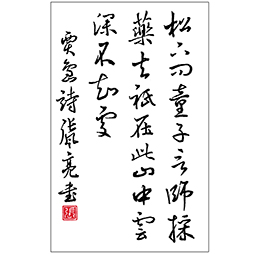 松下問童子言師採
藥去祇在此山中雲
深不知處
賈島詩張亮書